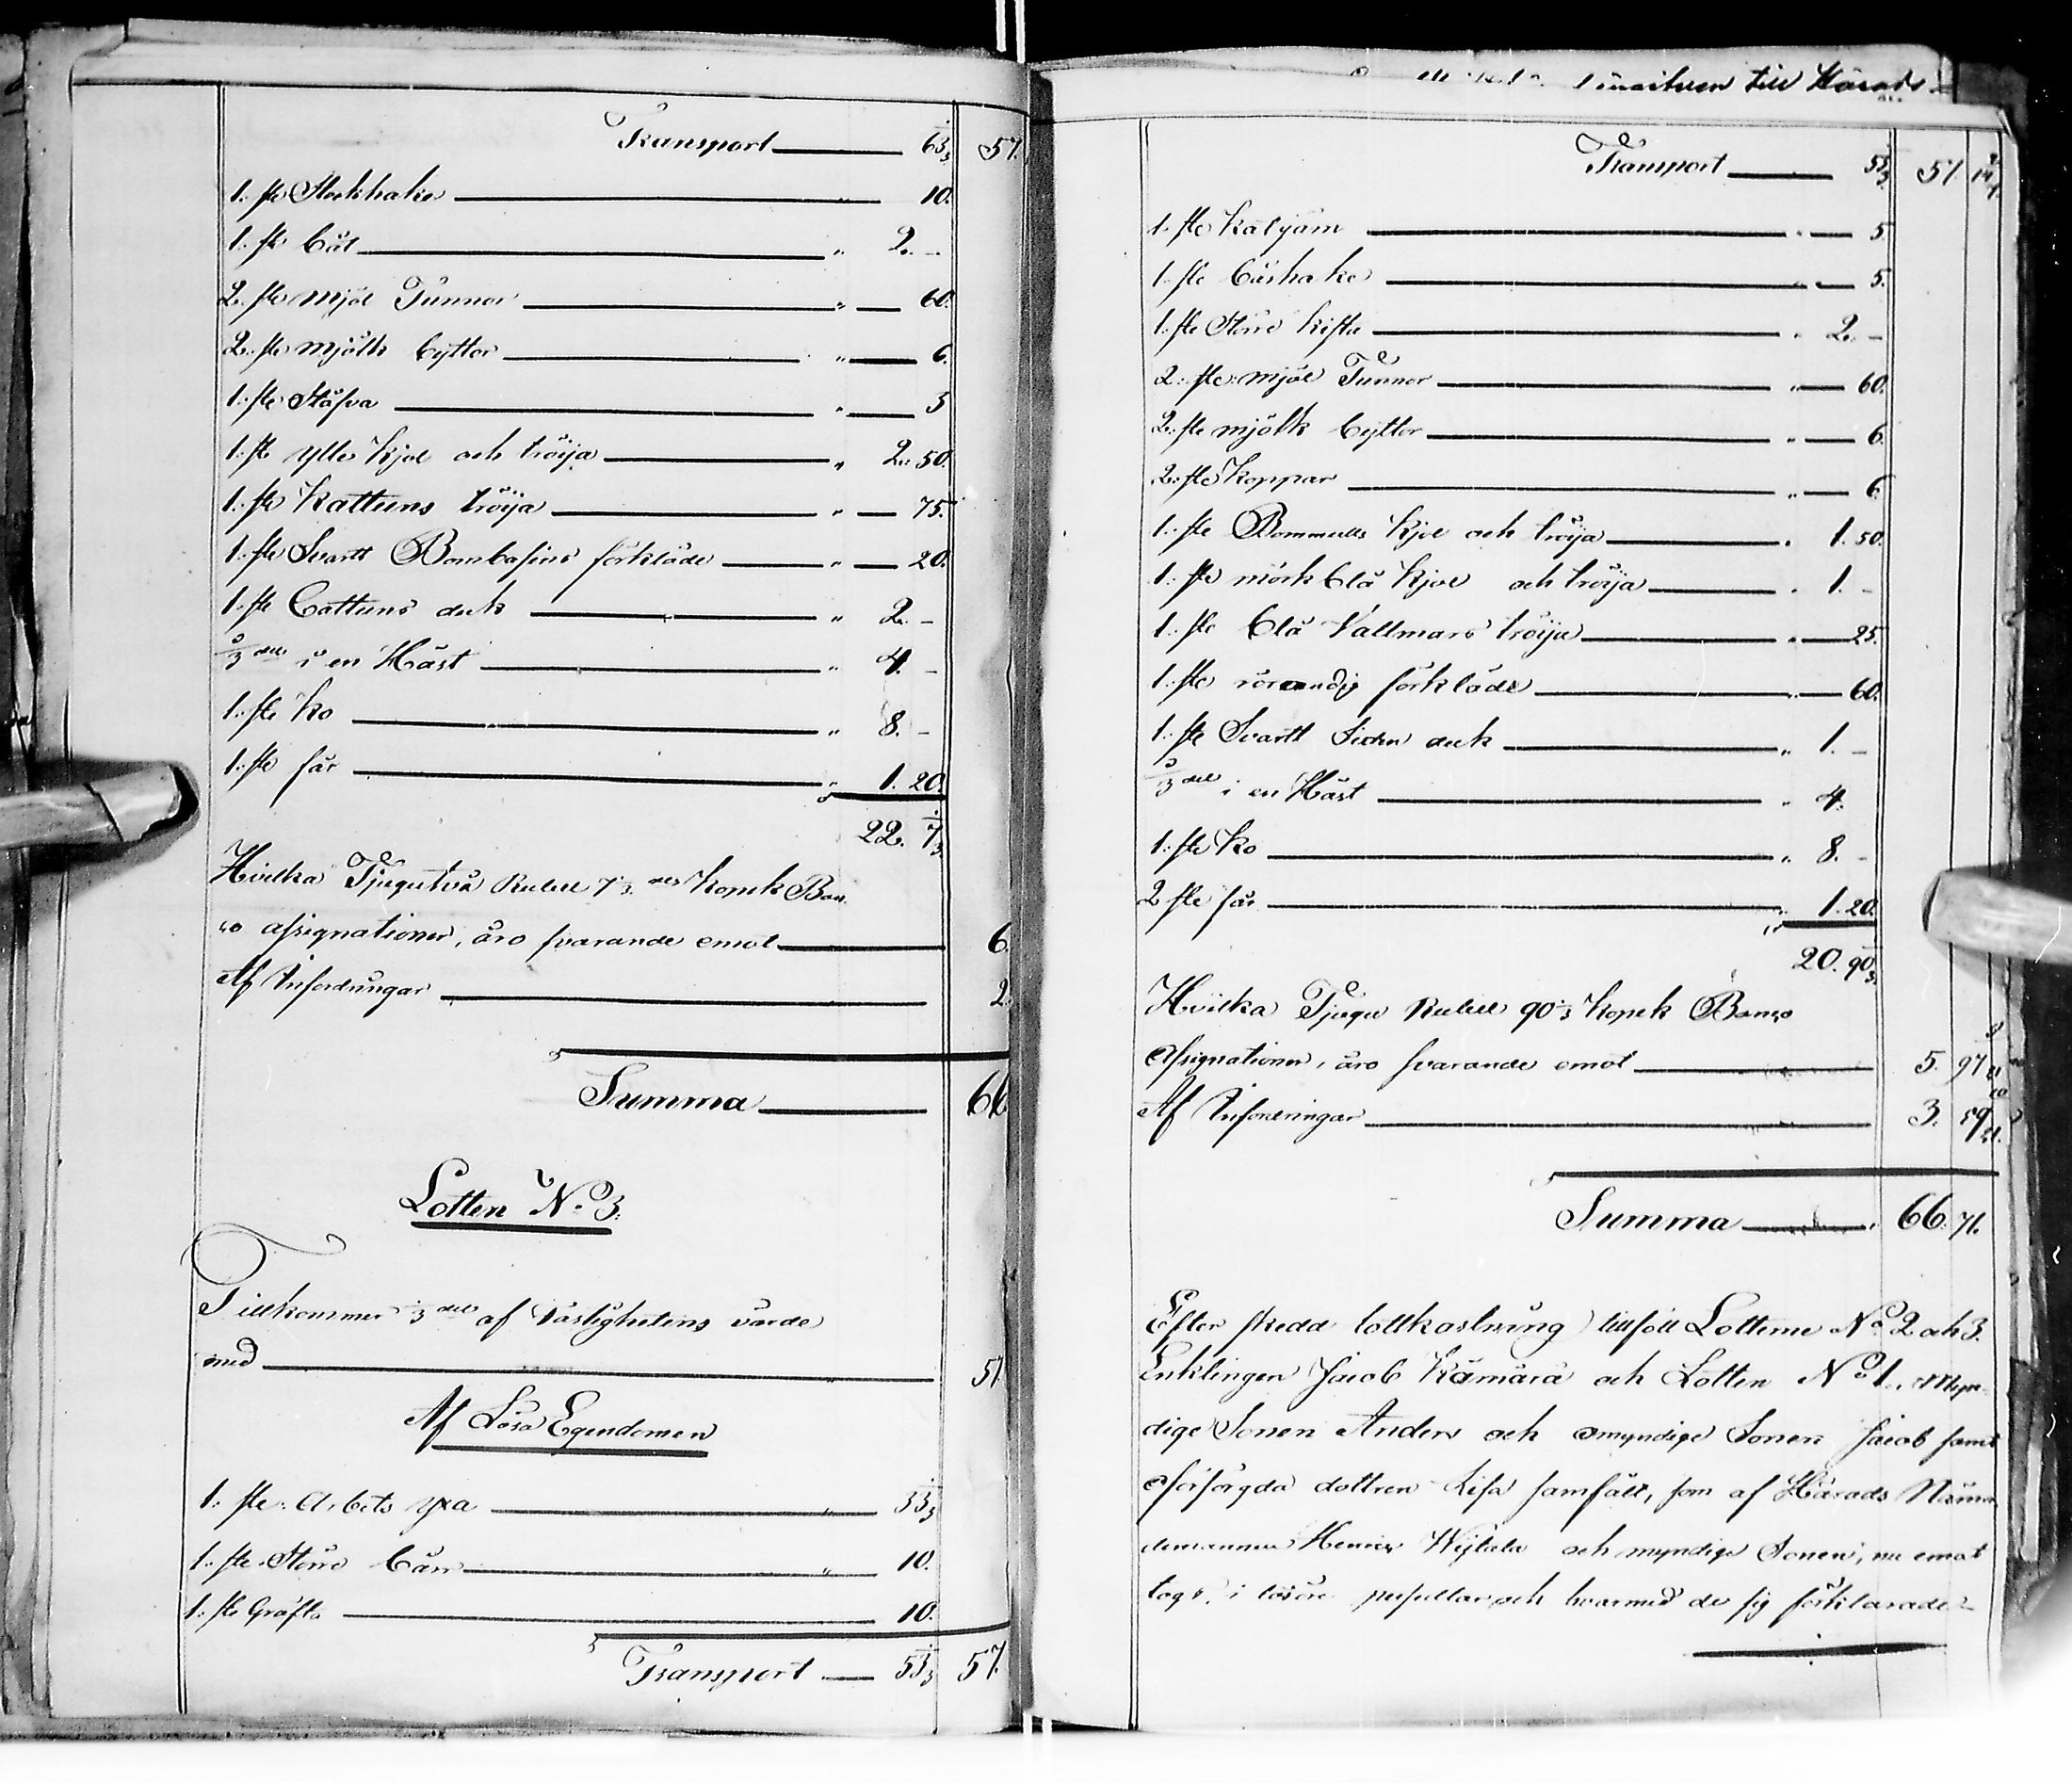 Transport 63 1/3 57.
1. st. Stockhake " 10.
1. st. båt " 2. -
2. st. mjöl Tunnor " 60.
2. st. mjölk byttor " 6.
1. st. Stäfva " 5
1. st. ylle Kjol och tröija " 2. 50.
1. st. Kattuns tröija " 75.
1. st. Svart Bombasins förkläde " 20.
1. st. Cattuns duk " 2. -
1/3 del i en Häst " 4. -
1. st. Ko " 8. -
1. st. får " 1. 20.
22. 7 1/3.
Hvilka Tjugutvå Rubel 7 1/3 dels Kopek Ban
co assignationer, äro svarande emot 6.
Af Infordringar 2.
Summa 66
Lotten No 3.
Tillkommer 1/3 del af Fastighetens värde
med " 57
Af Lösa Egendomen
1. st. Arbets yxa " 33 1/3
1. st. Större " 10.
1. st. Gräfta 10.
Transport 53 1/3 57.
till Härads
Transport 53 1/3 57.
1. st. Kåljärn " 5
1. st. båshake " 5.
1. st. Större Kista " 2. -
2. st. mjöl Tunnor " 60.
2. st. mjölk byttor " 6
2. st. Koppar " 6
1. st. Bommulls Kjol och tröija " 1. 50.
1. st. mörk blå Kjol och tröija " 1. -
1. st. blå Vallmars tröija " 25.
1. st. förkläde " 60.
1. st. Svart Siden duk " 1. -
1/3 del i en Häst " 4.
1. st. Ko " 8. -
2 st. får " 1. 20.
20. 90 1/3
Hvilka Tjugu Rubel 90 1/3 Kopek Banco
assignationer, äro svarande emot 5. 97
Af Infordringar 3. 59
Summa 66. 71.
Efter skedd lottkastning tillföll Lotterne No 2 och 3.
Enklingen Jacob Kämärä och Lotten No 1. Myn
dige Sonen Anders och omyndige Sonen Jacob samt
oförsörgda dottren Lisa samfält, som af Härads Nämn
demannen Henric och myndige Sonen, nu emot
togs, i lösöre persedlar och hvarmed de sig förklarade